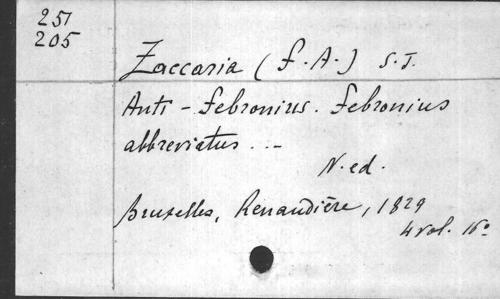 251
205
Zaccaria (F. A.) S. J.
Anti-Febronius. Febronius
abbreviatus ...
N. ed.
Bruxelles, Renaudière, 1829
4 vol. 16º